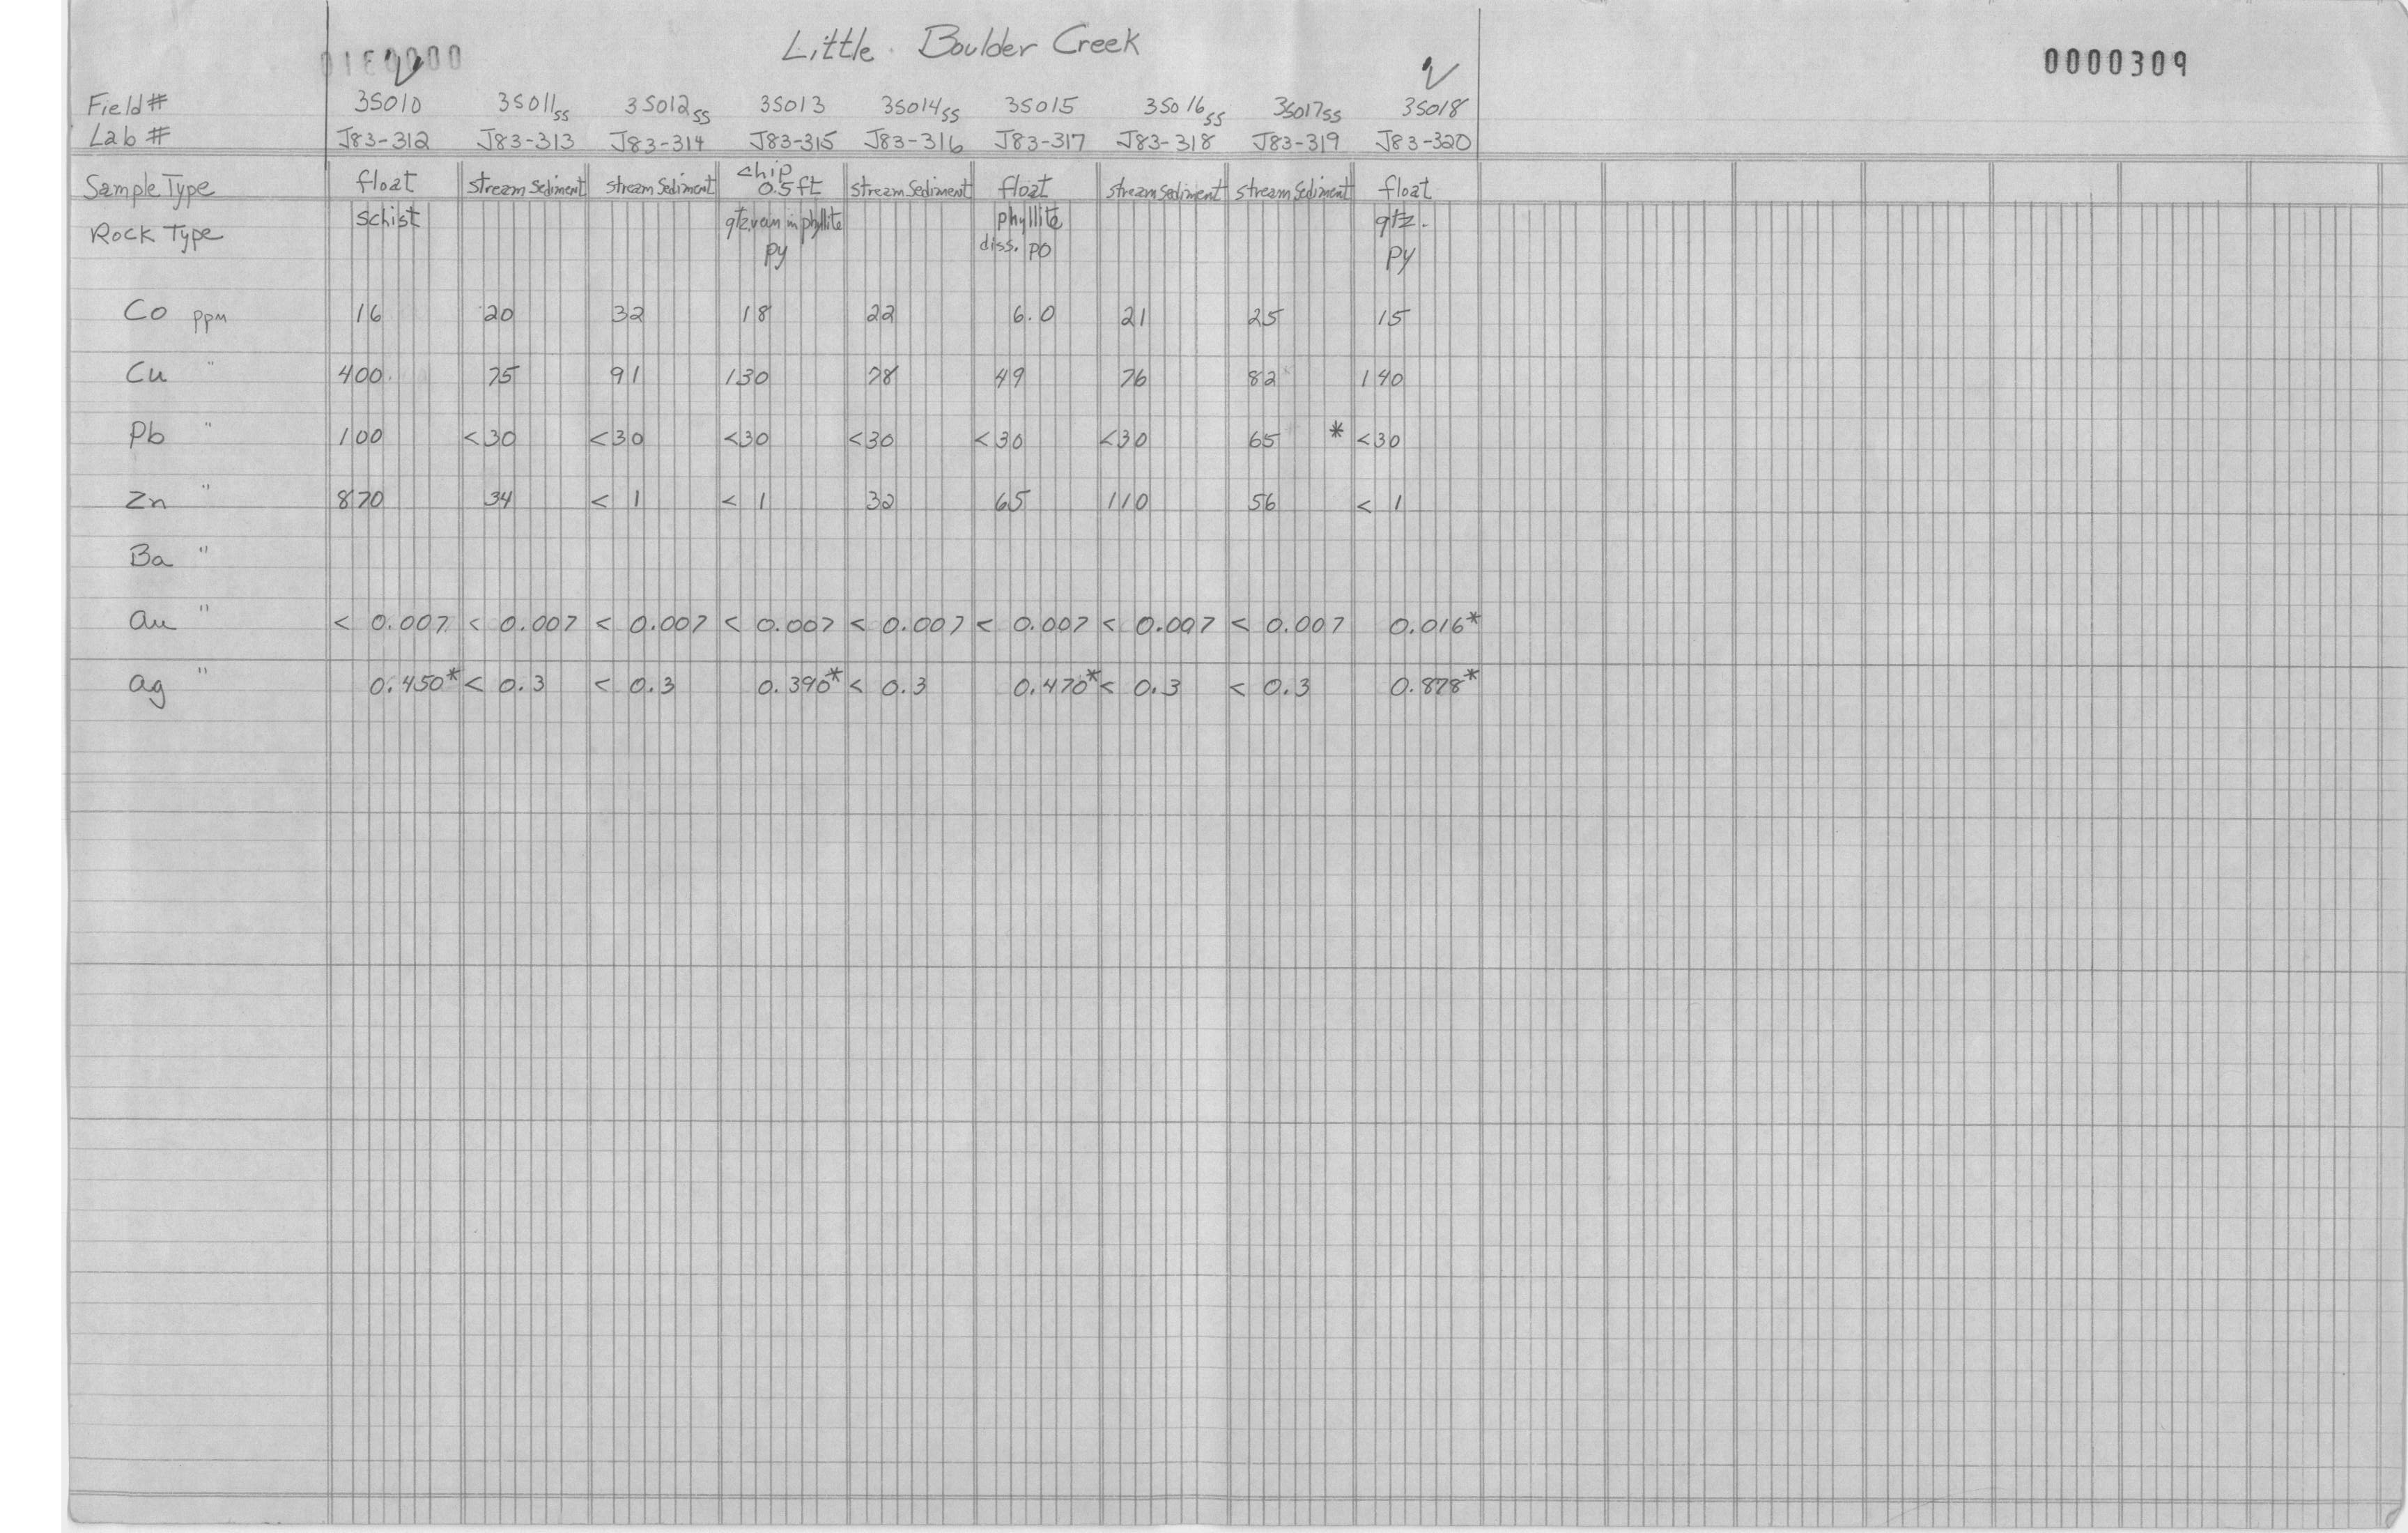 Little Boulder Creek
0000309
Field # 35010 35011ss 35012ss 35013 35014ss 35015 35016ss 35017ss 35018
Lab # J83-312 J83-313 J83-314 J83-315 J83-316 J83-317 J83-318 J83-319 J83-320
Sample Type float stream sediment stream sediment chip 0.5ft stream sediment float stream sediment stream sediment float
Rock Type schist qtz. vein in phyllite py phyllite diss. po qtz. py
Co ppm 16 20 32 18 22 6.0 21 25 15
Cu " 400 75 91 130 78 49 76 82 140
Pb " 100 <30 <30 <30 <30 <30 <30 65 * <30
Zn " 870 34 < 1 < 1 32 65 110 56 < 1
Ba "
Au " < 0.007 < 0.007 < 0.007 < 0.007 < 0.007 < 0.007 < 0.007 < 0.007 0.016*
Ag " 0.450* < 0.3 < 0.3 0.390* < 0.3 0.470* < 0.3 < 0.3 0.878*